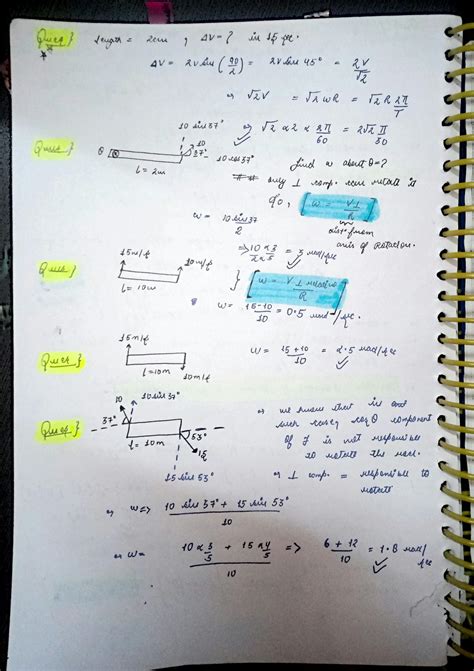 Ques} length = 2cm, ΔV = ? in 15 sec.
ΔV = 2v sin (90/2) = 2v sin 45° = 2V/√2
or √2V = √2 ωR = √2 R 2π/T
or √2 × 2 × 2π/60 = 2√2 π/30
Ques} 10 sin 37° 10 37° 10 cos 37°
l = 2m
find ω about θ = ?
only ⊥ comp. can rotate it
So, [ω = V⊥/R]
dist. from axis of rotation.
ω = 10 sin 37/2
=> 10 × 3/2 × 5 = 3 rad/sec
Ques} 15m/s 10m/s
l = 10m
} [ω = V⊥ relative/R]
ω = 15-10/10 = 0.5 rad/sec.
Ques} 15m/s
l = 10m 10m/s
ω = 15+10/10 = 2.5 rad/sec
Ques} 10 10 sin 37°
37° 53°
l = 10m 15
15 sin 53°
or we know that in
such cases, cosθ component
of is not responsible
to rotate the rod.
or ⊥ comp. = responsible to
rotate
or ω => 10 sin 37° + 15 sin 53°/10
or ω = 10 × 3/5 + 15 × 4/5/10 => 6 + 12/10 = 1.8 rad/sec